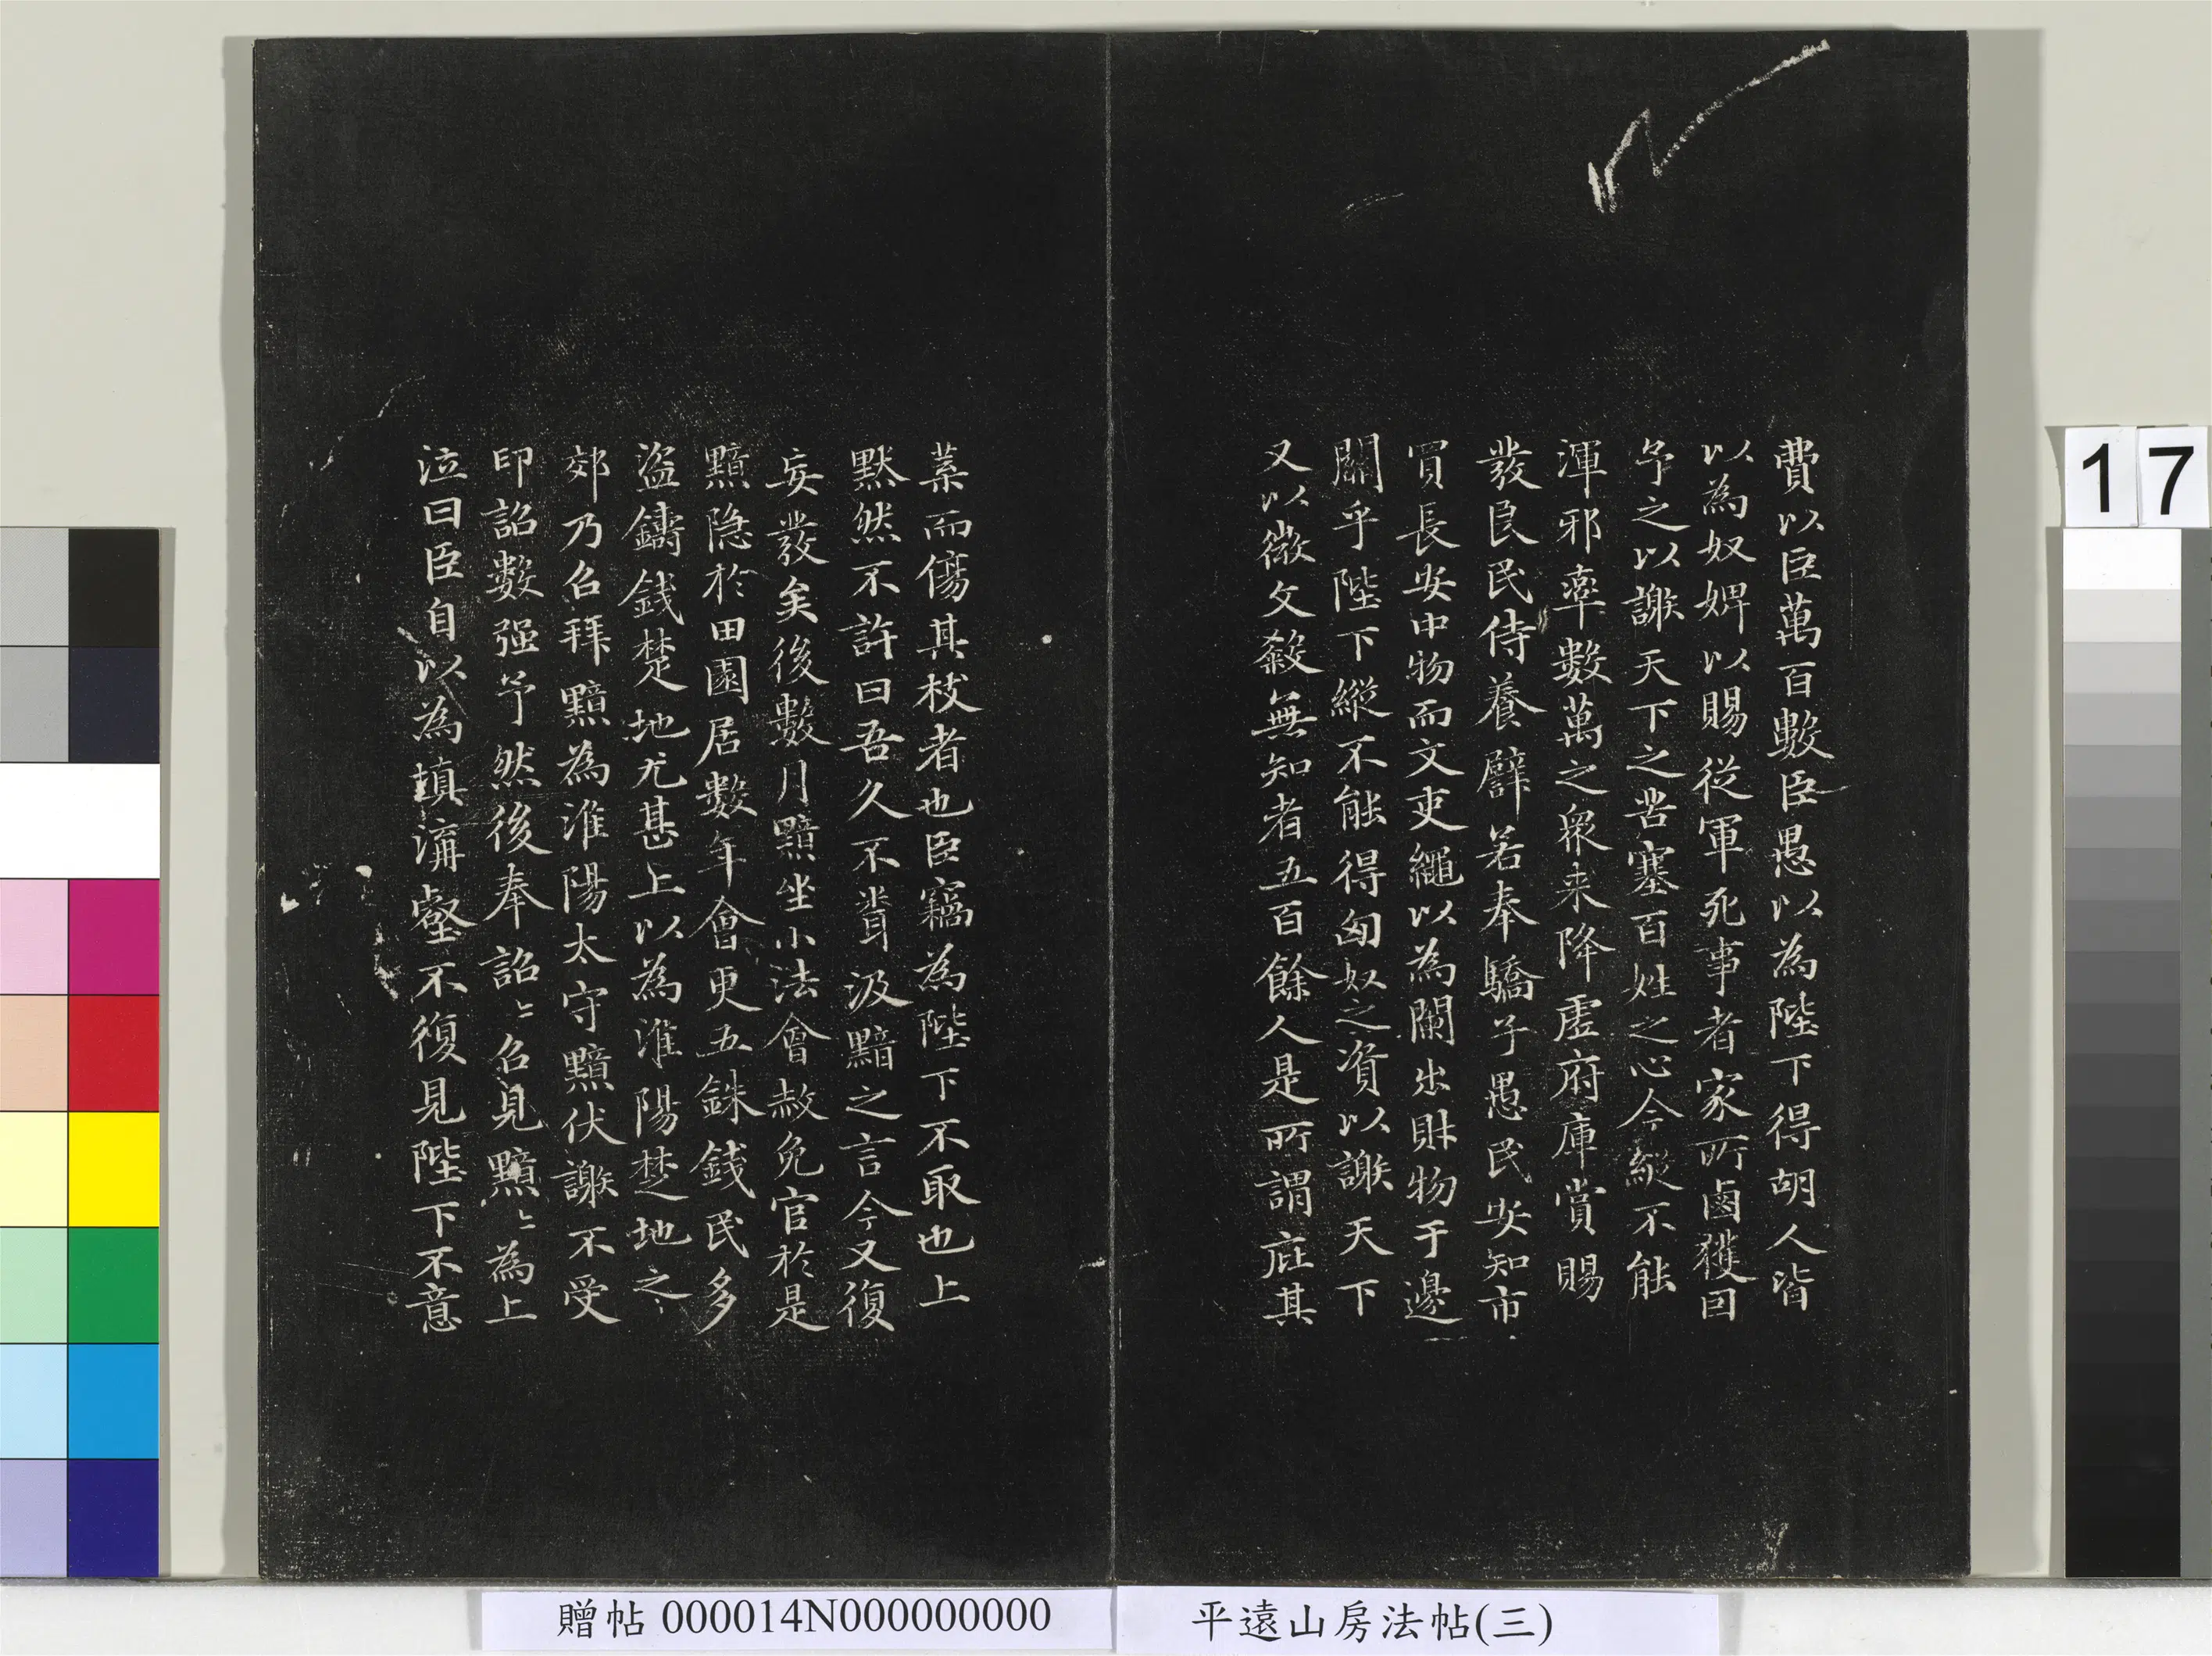 費以巨萬百數臣愚以為陛下得胡人皆
以為奴婢以賜從軍死事者家所鹵獲因
予之以謝天下之苦塞百姓之心今縱不能
渾邪率數萬之衆来降虛府庫賞賜
發良民侍養譬若奉驕子愚民安知市
買長安中物而文吏繩以為闌出財物于邊
關乎陛下縱不能得匈奴之資以謝天下
又以微文殺無知者五百餘人是所謂庇其
葉而傷其枝者也臣竊為陛下不取也上
默然不許曰吾久不聞汲黯之言今又復
妄發矣後數月黯坐小法會赦免官於是
黯隐於田園居數年會更五銖錢民多
盜鑄錢楚地尤甚上以為淮陽楚地之
郊乃召拜黯為淮陽太守黯伏謝不受
印詔數强予然後奉詔〻召見黯〻為上
泣曰臣自以為填溝壑不復見陛下不意
17
贈帖 000014N000000000
平遠山房法帖(三)